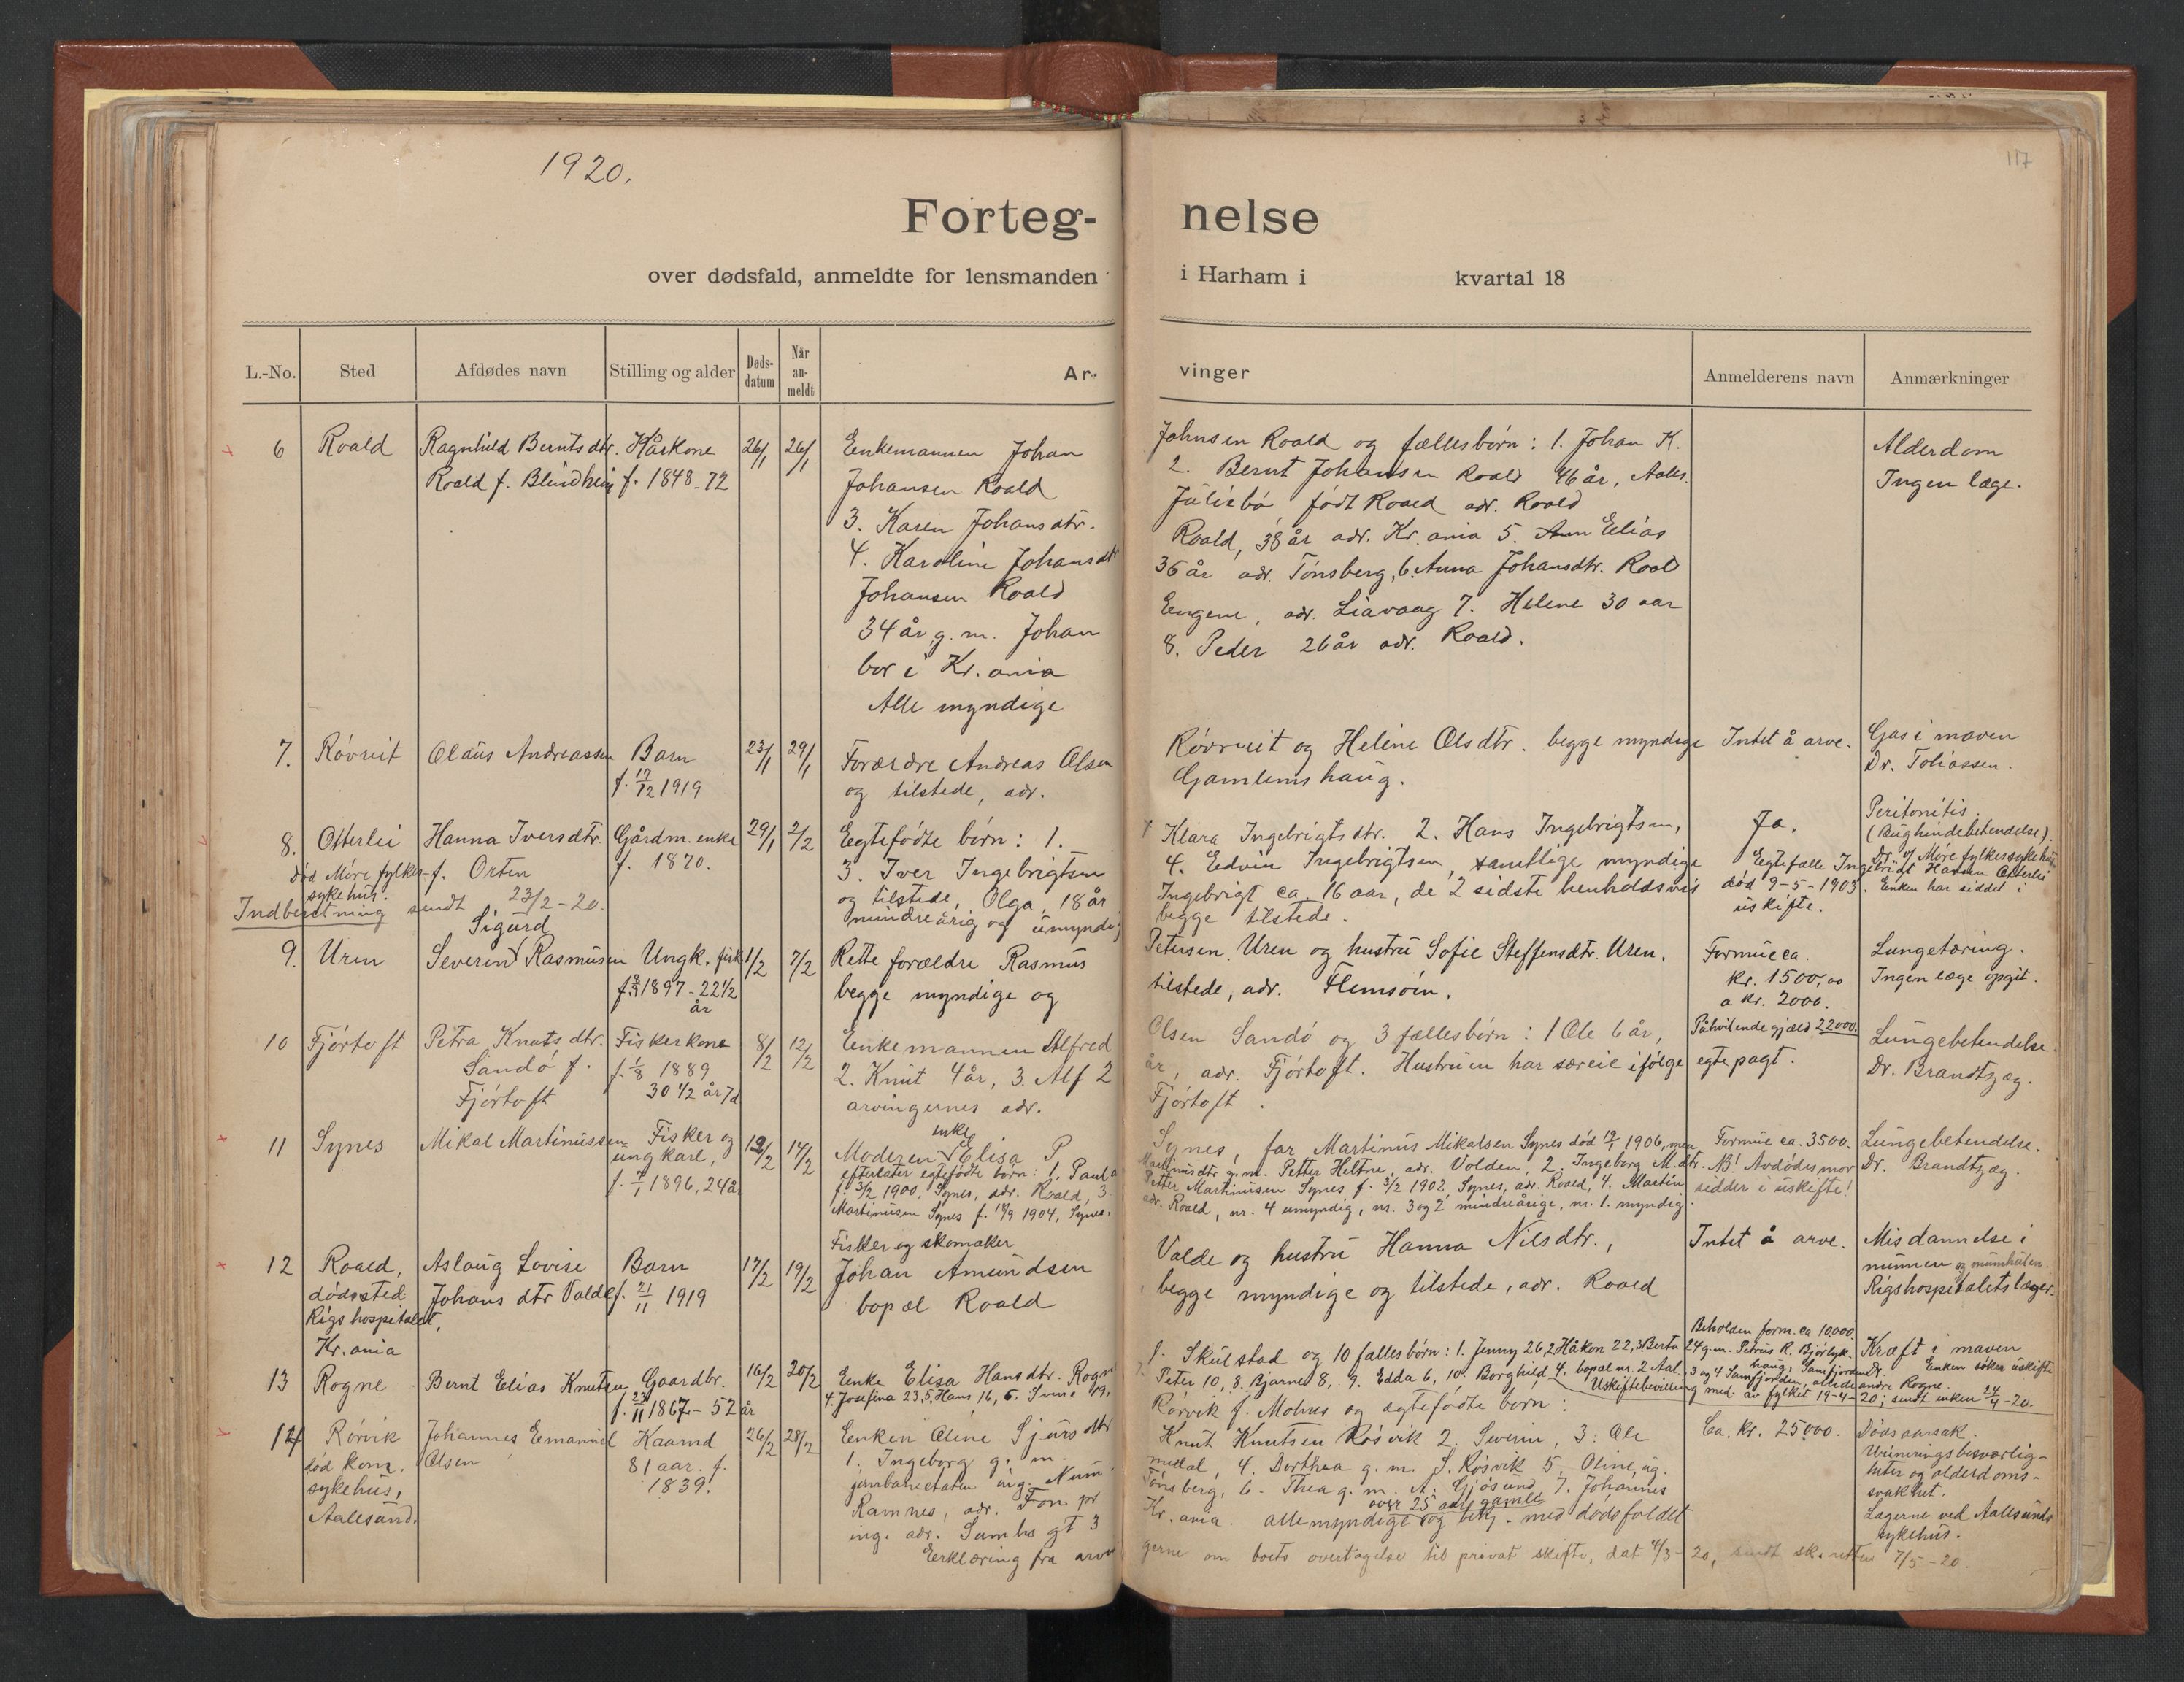 1920.
117
Forteg-
nelse
over dødsfald, anmeldte for lensmanden
i Harham i kvartal 18
L.-No.
Sted
Afdødes navn
Stilling og alder
Døds-
datum
Når
an-
meldt
Ar-
vinger
Anmelderens navn
Anmærkninger
6 Roald Ragnhild Berntsdtr. Håskone 26/1 26/1 Enkemannen Johan Johnsen Roald og fællesbørn: 1. Johan K. Alderdom
Roald f. Blindheim f. 1848-72 Johansen Roald 2. Bernt Johansen Roald 46 år, Aales. Ingen læge.
3. Karen Johansdtr. Juliebø født Roald adr. Roald
4. Karoline Johansdtr Roald, 38 år adr. Kr.ania 5. Elias
Johansen Roald 36 år adr. Tønsberg, 6. Anna Johansdtr. Roal
34 år g. m. Johan Engene, adr. Liavaag 7. Helene 30 aar
bor i Kr.ania 8. Peder 26 år adr. Roald.
Alle myndige
7. Røvreit Olaus Andreassen Barn 23/1 29/1 Forældre Andreas Olsen Røvreit og Heline Olsdtr. begge myndige Intet å arve. Gas i maven
f. 17/12 1919 og tilstede, adr. Gamlemshaug. Dr. Tobiassen.
8. Otterlei Hanna Iversdtr. Gårdm. enke 29/1 2/2 Egtefødte børn: 1. Klara Ingebrigtsdtr. 2. Hans Ingebrigtsen, Ja. Peritonitis.
(Bughindebetendelse).
død Møre fylkes- f. Orten f. 1870. 3. Iver Ingebrigtsen 4. Edvin Ingebrigtsen, samtlige myndige Egtefælle Ingebrigt Hansen Otterlei Dr. v/ Møre fylkessykehus
sykehus. og tilstede, Olga, 18 år Ingebrigt ca. 16 aar, de 2 sidste henholdsvis død 9-5-1903. Enken har siddet i
Indberetning sendt 23/2-20. mindreårig og umyndig begge tilstede. uskifte.
Sigurd
9. Uren Severin Rasmusen Ungk. fisk 1/2 7/2 Rette forældre Rasmus Petersen Uren og hustru Sofie Steffensdtr. Uren. Formue ca. Lungetæring.
f. 1897-22 1/2 begge myndige og tilstede, adr. Flemsøin. kr. 1500,00 Ingen læge opgit.
år a kr. 2000.
10 Fjørtoft Petra Knutsdtr. Fiskerkone 8/2 12/2 Enkemannen Alfred Olsen Sandø og 3 fællesbørn: 1 Ole 6 år, Påhvilende gjæld 22000. Lungebetendelse
Sandø f. f. 1/8 1889 2. Knut 4 år, 3. Alf 2 år, adr. Fjørtoft. Hustruen har særeie ifølge egtepagt. Dr. Brandtzæg.
Fjørtoft 30 1/2 år 7d arvingernes adr. Fjørtoft.
enke
11 Synes Mikal Martinussen Fisker og 12/2 14/2 Moderen Elisa P Synes, far Martinus Mikalsen Synes død 19/1 1906, men Formue ca. 3500. Lungebetendelse.
ungkarl, efterlater egtefødte børn: 1. Paula Martinusdtr g. m. Petter Heltne, adr. Volden, 2. Ingeborg M.dtr. NB! Avdødes mor Dr. Brandtzæg.
f. 1896, 24 år f. 3/2 1900, Synes, adr. Roald, 3. Petter Martinusen Synes f. 3/2 1902, Synes, adr. Roald, 4. Martin sidder i uskifte!
Martinusen Synes f. 17/9 1904, Synes. adr. Roald, nr. 4 umyndig, nr. 3 og 2 mindreårige, nr. 1. myndig.
Fisker og skomaker
12 Roald, Aslaug Lovise Barn 17/2 19/2 Johan Amundsen Valde og hustru Hanna Nilsdtr., Intet å arve. Misdannelse i
dødssted Johansdtr Valde f. 21/11 1919 bopæl Roald begge myndige og tilstede, adr. Roald munnen og munnhulen.
Rigshospitalet, Rigshospitalets læger.
Kr.ania
Beholden form. ca 10,000.
13 Rogne Bernt Elias Knutsen Gaardbr. 16/2 20/2 Enke Elisa Hansdtr. Rogne f. Skulstad og 10 fællesbørn: 1. Jenny 26, 2 Håkon 22, 3 Berta 24 g. m. Petrus R. Bjørlyk- Kræft i maven
f. 23/11 1867-52 år 4. Josefina 23, 5. Hans 16, 6. 19, 7. Peter 10, 8. Bjarne 8, 9. Edda 6, 10. Borghild 4. bopæl nr. 2 Aal. 3 og 4 Samfjorden, alle de andre Rogne. Enken søker uskifte
Uskiftebevilling med. av fylket 19-4-20; sendt enken 24/4-20.
14 Rørvik Johannes Emanuel Kaarmd 26/2 28/2 Enken Oline Sjursdtr Rørvik f. Molnes og egtefødte børn: Ca. kr. 25000. Dødsaarsak.
død kom. Olsen 81 aar. f. 1. Ingeborg g. m. Knut Knutsen Røsvik 2. Severin, 3. Ole Urineringsbesværlig-
sykehus, 1839. jernbanetaten ing. 4. Dorthea g. m. S. Røsvik 5. Oline, ug. heter og alderdoms-
Aalesund. Ramnes, adr. Fon pr Tønsberg, 6. Thea g. m. A. Gjøsund 7. Johannes svakhet.
over 25 aar gamle
ing. adr. Sambo gt 3 Kr.ania. alle myndige og bekj. med dødsfaldet Lægerne ved Aalesunds
sykehus.
Erklæring fra arvin gerne om boets overtagelse til privat skifte, dat 4/3-20, sendt sk.retten 7/5-20.